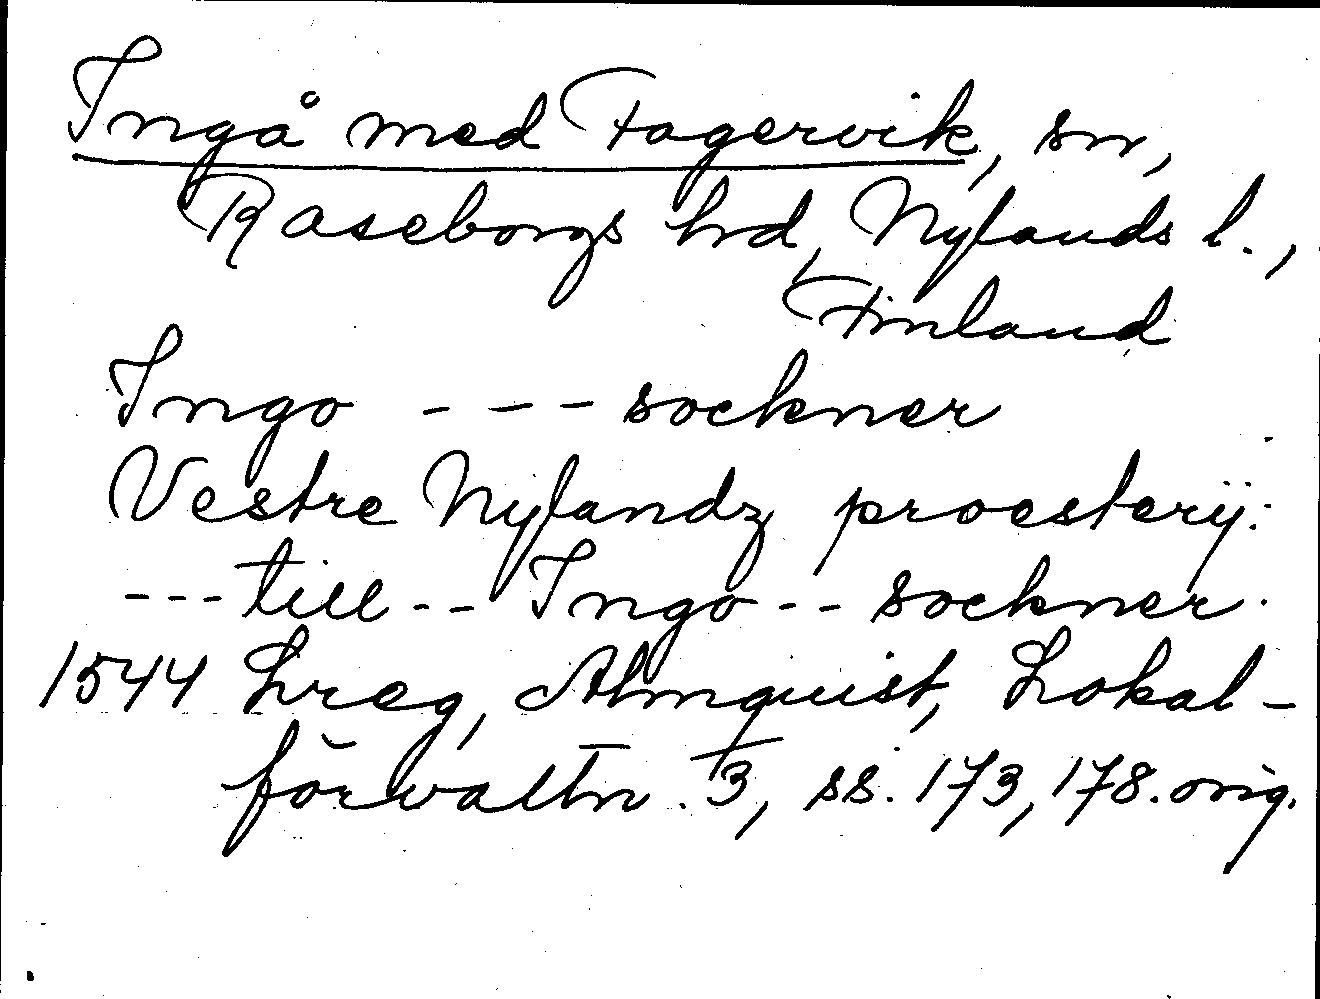 Ingå med Fagervik, sn,
Raseborgs hrd, Nylands l.,
Finland
Ingo - - - sockner
Vestre Nylandz proesterij:
- - - till - - Ingo - - sockner.
1544 Lreg, Almquist, Lokal-
förvaltn. 3, ss. 173, 178. orig.